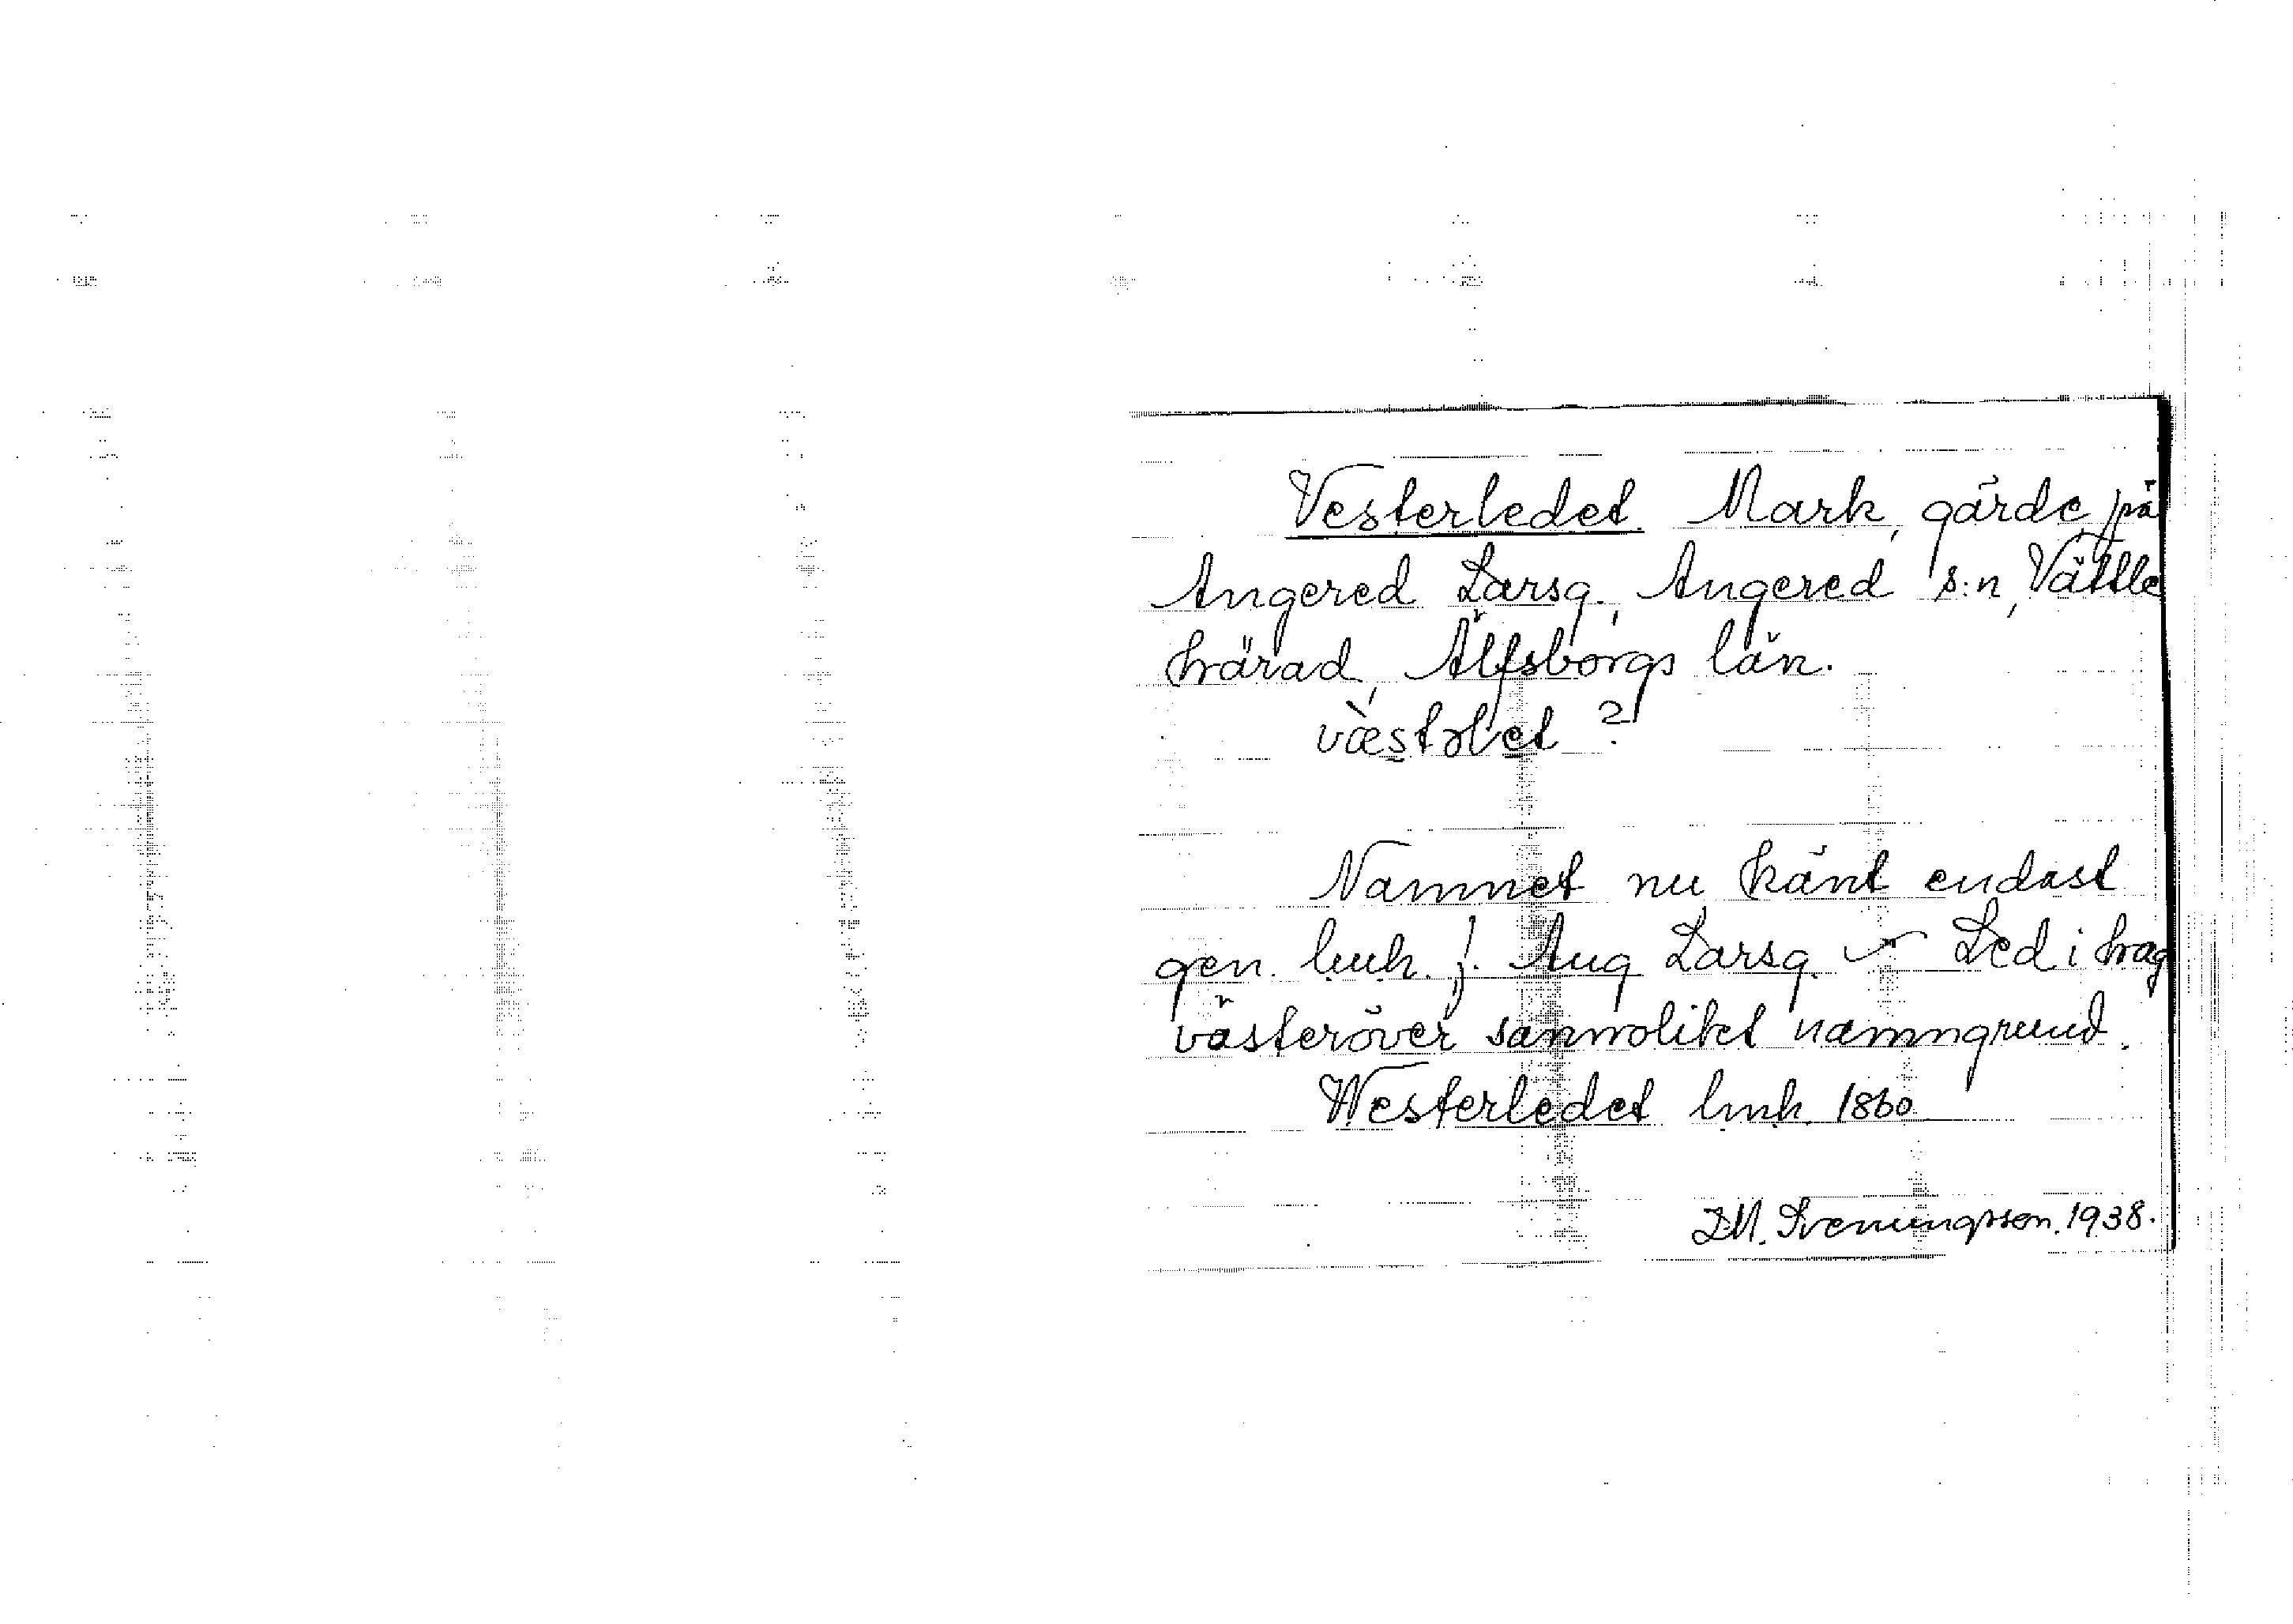 Vesterledet. Mark, gärde på
Angered Larsg., Angered s:n, Vättle
härad, Älfsborgs län.
væ̀stəḷet ?
Namnet nu känt endast
gen. lmk. f. Ang Larsg. Led i hag
västeröver sannolikt namngrund.
Westerledet lmk 1860
D.M. Svenungsson. 1938.